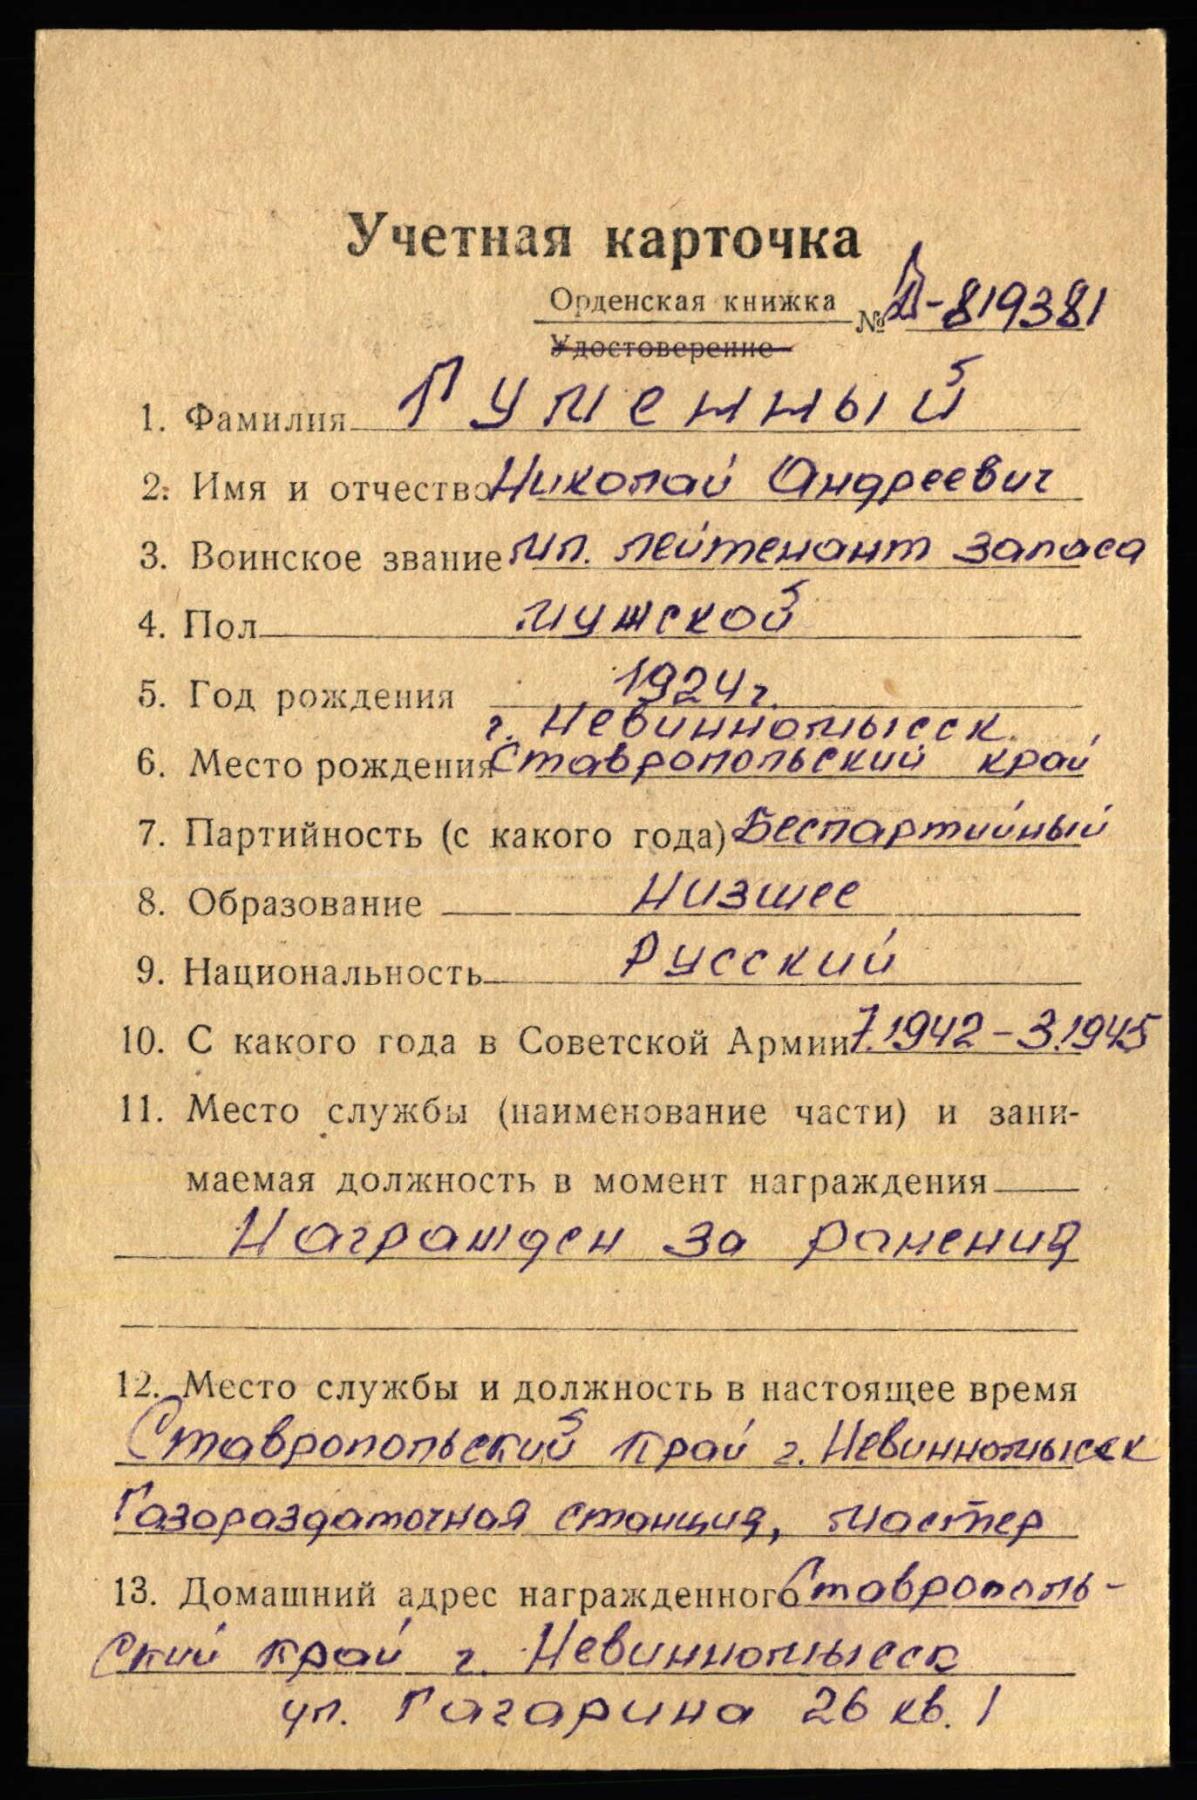 Учетная карточка
Орденская книжка № Д-819381
Удостоверение
1. Фамилия Гуменный
2. Имя и отчество Николай Андреевич
3. Воинское звание мл. лейтенант запаса
4. Пол мужской
5. Год рождения 1924 г.
г. Невинномысск
6. Место рождения Ставропольский край
7. Партийность (с какого года) Беспартийный
8. Образование Низшее
9. Национальность Русский
10. С какого года в Советской Армии 7.1942 – 3.1945
11. Место службы (наименование части) и зани-
маемая должность в момент награждения
Награжден за ранения
12. Место службы и должность в настоящее время
Ставропольский край г. Невинномысск
Газораздаточная станция, мастер
13. Домашний адрес награжденного Ставрополь-
ский край г. Невинномысск
ул. Гагарина 26 кв. 1